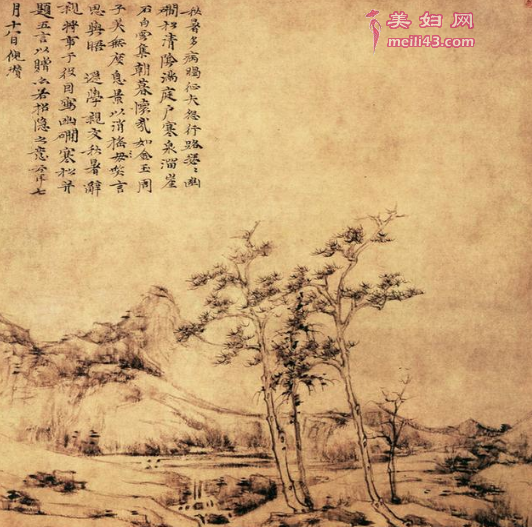 秋暑多病暍征夫怨行路瑟瑟幽
澗松清陰滿庭戶寒泉溜崖
石白雲集朝暮懷哉如金玉周
子美無度息景以消搖笑言
思與晤 遜學親友秋暑辭
親將事于役因寫幽澗寒松并
題五言以贈亦若招隱之意云耳七
月十八日倪瓚
美妇网
meili43.com